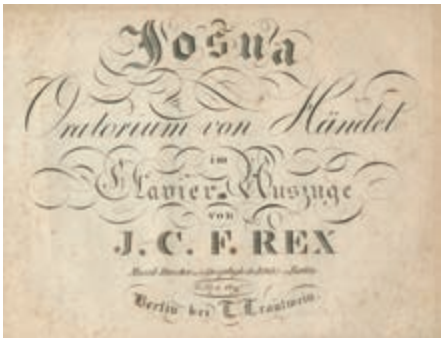 Josua
Oratorium von Händel
im
Clavier-Auszuge
von
J. C. F. REX
Berlin bei T. Trautwein.